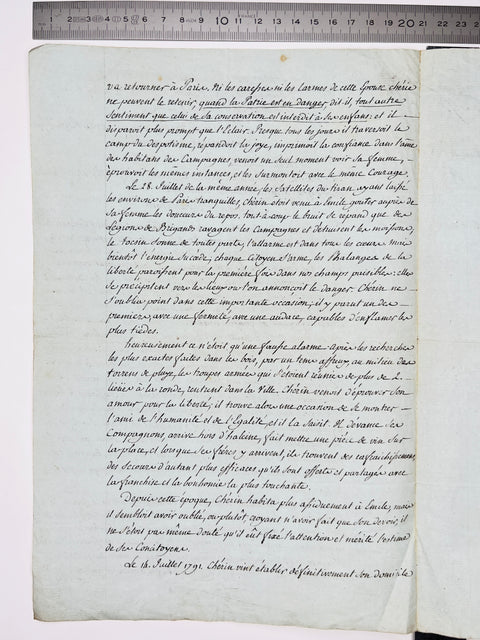 va retourner à Paris. Ni les caresses ni les larmes de cette Epouse chérie
ne peuvent le retenir, quand la Patrie est en danger, dit-il, tout autre
Sentiment que celui de sa conservation est interdit à ses enfans: et il
disparoit plus prompt que l'Eclair. Presque tous les jours il traversoit le
camp du despotisme, répandoit la joye, imprimoit la confiance dans l'ame
des habitans des Campagnes, venoit un seul moment voir sa femme,
éprouvoit les mêmes instances, et les Surmontoit avec le même Courage.
Le 28. Juillet de la même année, les Satellites du tiran ayant laissé
les environs de Paris tranquilles, Chérin étoit venu à Emile gouter auprès de
sa femme les douceurs du repos, tout à coup le bruit se répand que des
Légions de Brigands ravagent les Campagnes et détruisent les moissons,
le tocsin sonne de toutes parts, l'allarme est dans tous les cœurs mais
bientôt l'énergie succède, chaque Citoyen s'arme, les Phalanges de la
liberté paroissent pour la première fois dans nos champs paisibles: elles
se précipitent vers les lieux où l'on annonçoit le danger. Chérin ne
s'oublia point dans cette importante occasion, il y parut un des
premiers, avec une fermeté, avec une audace, capables d'enflamer les
plus tièdes.
heureusement ce n'étoit qu'une fausse alarme. Après les recherches
les plus exactes faites dans les bois, par un tems affreux, au milieu des
torrens de pluye, les troupes armées qui s'étoient réunies de plus de 2.
lieües à la ronde, rentrent dans la Ville. Chérin venoit d'éprouver son
amour pour la liberté; il trouve alors une occasion de se montrer
l'ami de l'humanité et de l'Egalité, et il la Saisit. Il devance ses
Compagnons, arrive hors d'haleine, fait mettre une pièce de vin sur
la place, et lorsque ses frères y arrivent, ils trouvent des rafraichissemens,
des secours d'autant plus efficaces qu'ils sont offerts et partagés avec
la franchise et la bonhomie la plus touchante.
Depuis cette époque, Chérin habita plus assiduement à Emile, mais
il sembloit avoir oublié, ou plutôt, croyant n'avoir fait que son devoir, il
ne s'étoit pas même douté qu'il eût fixé l'attention et mérité l'estime
de ses Concitoyens.
Le 14. Juillet 1791. Chérin vint établir définitivement son domicile